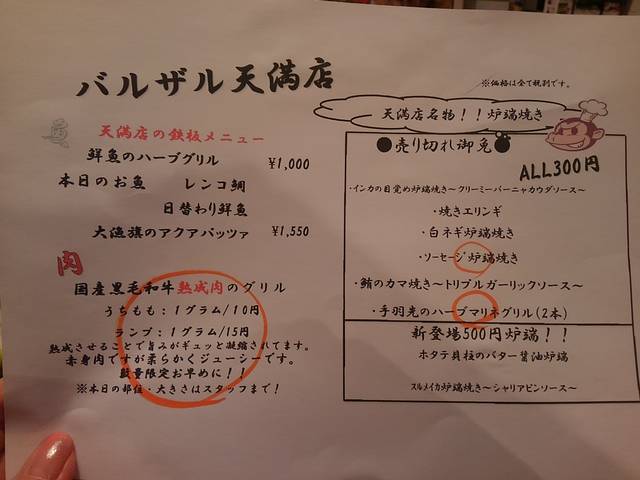 バルザル天満店
※価格は全て税別です。
魚
天満店の鉄板メニュー
鮮魚のハーブグリル ¥1,000
本日のお魚 レンコ鯛
日替わり鮮魚
大漁旗のアクアパッツァ ¥1,550
肉
国産黒毛和牛熟成肉のグリル
うちもも:1グラム/10円
ランプ:1グラム/15円
熟成させることで旨みがギュッと凝縮されてます。
赤身肉ですが柔らかくジューシーです。
数量限定お早めに!!
※本日の部位・大きさはスタッフまで!
天満店名物!!炉端焼き
●売り切れ御免●
ALL300円
・インカの目覚め炉端焼き~クリーミーバーニャカウダソース~
・焼きエリンギ
・白ネギ炉端焼き
・ソーセージ炉端焼き
・鮪のカマ焼き~トリプルガーリックソース~
・手羽先のハーブマリネグリル(2本)
新登場500円炉端!!
ホタテ貝柱のバター醤油炉端
スルメイカ炉端焼き~シャリアピンソース~